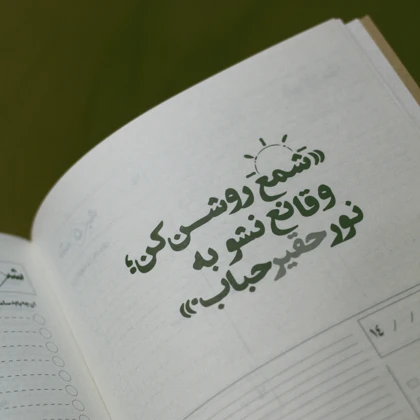 «شمع روشن کن؛
و قانع نشو به
نور حقیر حباب.»
۱۴ / /